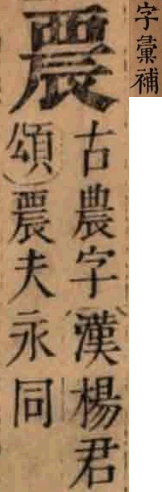 字彙補
古農字(漢楊君
頌)夫永同